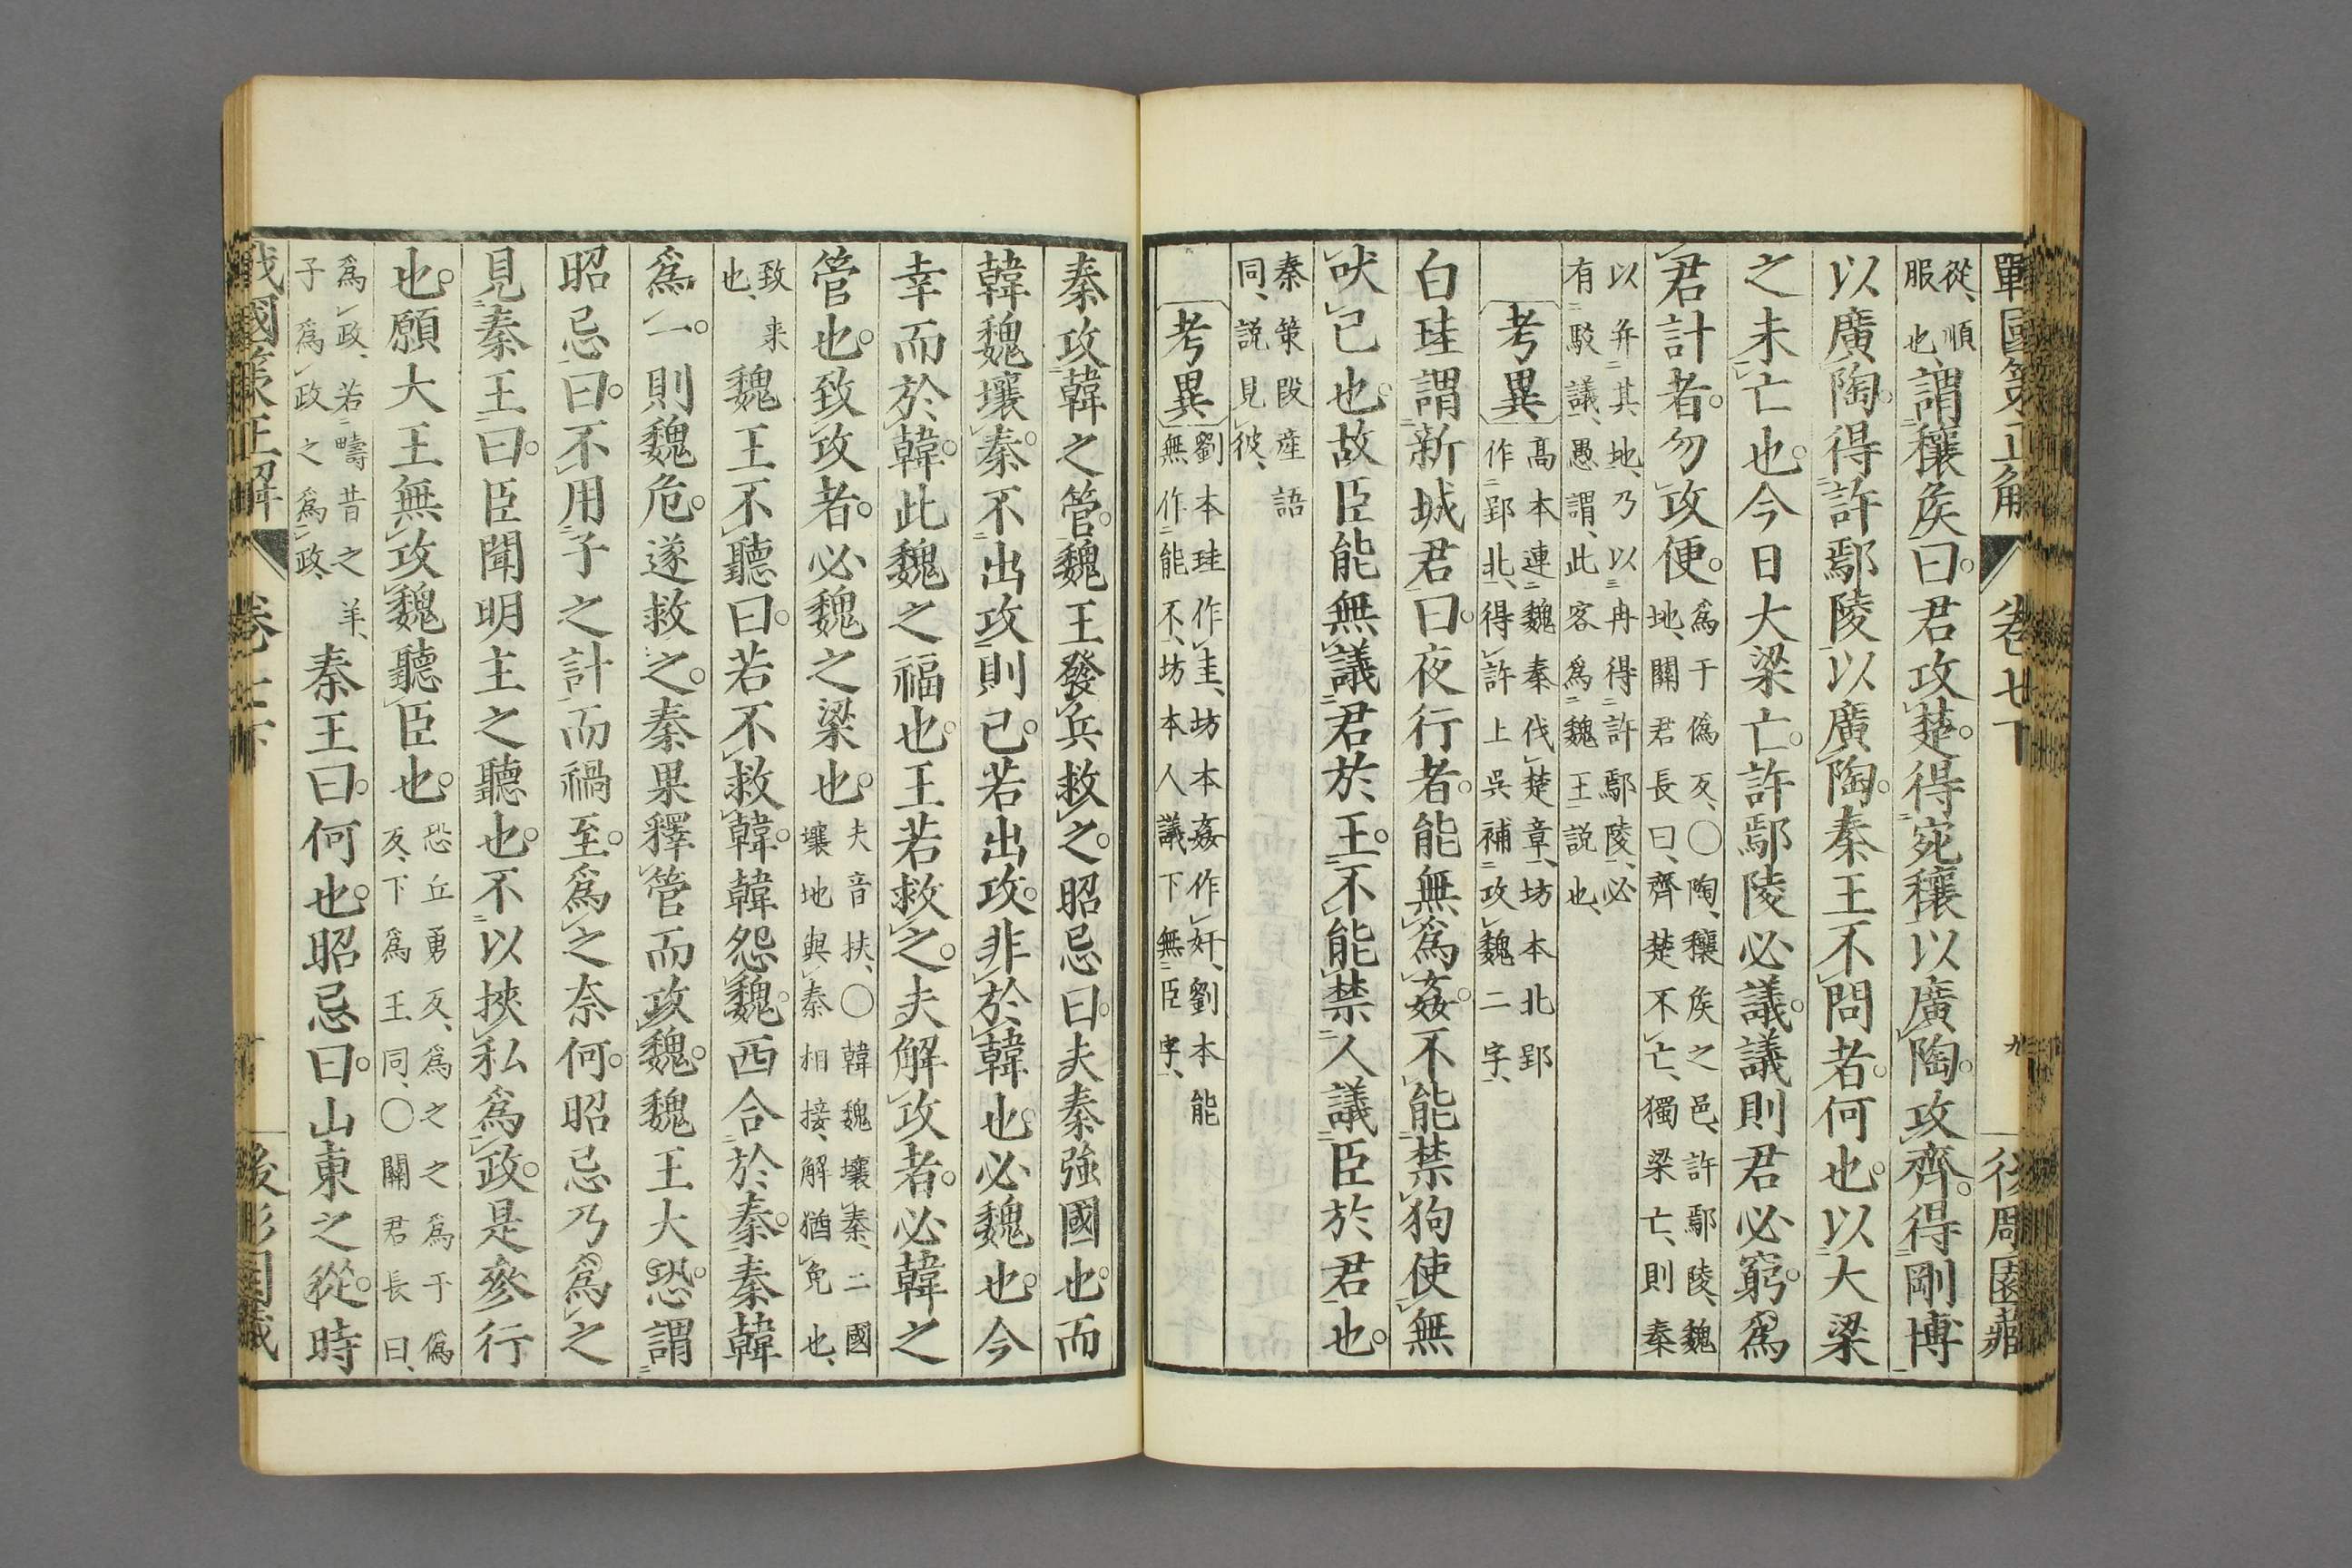 戰國策正解 卷七下 九 後彫園藏
從順
服也、謂穰侯曰。君攻楚。得宛穰以廣陶。攻齊。得剛博
以廣陶。得許鄢陵以廣陶。秦王不問者。何也。以大梁
之未亡也。今日大梁亡。許鄢陵必議。議則君必窮。爲
君計者。勿攻便。
爲于僞反、○陶、穰侯之邑、許鄢陵、魏
地、關君長曰、齊楚不亡、獨梁亡、則秦
以弁其地、乃以冉得許鄢陵、必
有駁議、愚謂、此客爲魏王説也、
考異
高本連魏秦伐楚章、坊本北郢
作郢北、得許上吳補攻魏二字、
白珪謂新城君曰。夜行者。能無爲姦。不能禁狗使無
吠已也。故臣能無議君於王。不能禁人議臣於君也。
秦策段産語
同、説見彼、
考異
劉本珪作圭、坊本姦作奸、劉本能
無作能不、坊本人議下無臣字、
秦攻韓之管。魏王發兵救之。昭忌曰。夫秦強國也。而
韓魏壤秦。不出攻則已。若出攻。非於韓也。必魏也。今
幸而於韓。此魏之福也。王若救之。夫解攻者。必韓之
管也。致攻者。必魏之梁也。
夫音扶、○韓魏壤秦、二國
壤地與秦相接、解猶免也、
致来
也、
魏王不聽。曰。若不救韓。韓怨魏。西合於秦。秦韓
爲一。則魏危。遂救之。秦果釋管而攻魏。魏王大恐。謂
昭忌曰。不用子之計而禍至。爲之奈何。昭忌乃爲之
見秦王曰。臣聞明主之聽也。不以挾私爲政。是參行
也。願大王無攻魏。聽臣也。
恐丘勇反、爲之之爲于僞
反、下爲王同、○關君長曰、
爲政、若疇昔之羊、
子爲政之爲政、
秦王曰。何也。昭忌曰。山東之從。時
戰國策正解 卷七下 後彫園藏